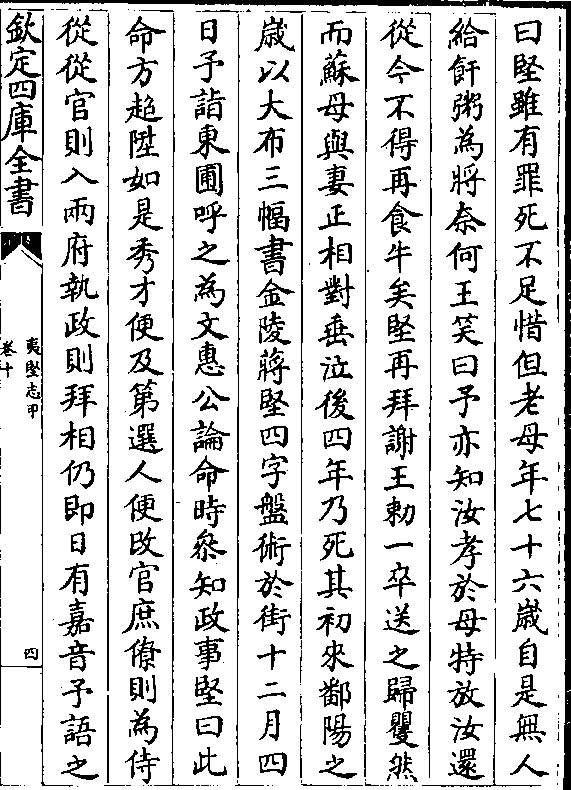 曰堅雖有罪死不足惜但老母年七十六嵗自是無人
給飦粥為將奈何王笑曰予亦知汝孝於母特放汝還
從今不得再食牛矣堅再拜謝王勅一卒送之歸矍然
而蘇母與妻正相對垂泣後四年乃死其初來鄱陽之
嵗以大布三幅書金陵蔣堅四字盤術於街十二月四
日予詣東圃呼之為文惠公論命時叅知政事堅曰此
命方趍陞如是秀才便及第選人便改官庶僚則為侍
從從官則入兩府執政則拜相仍即日有嘉音予語之
欽定四庫全書
夷堅志甲
卷十
四